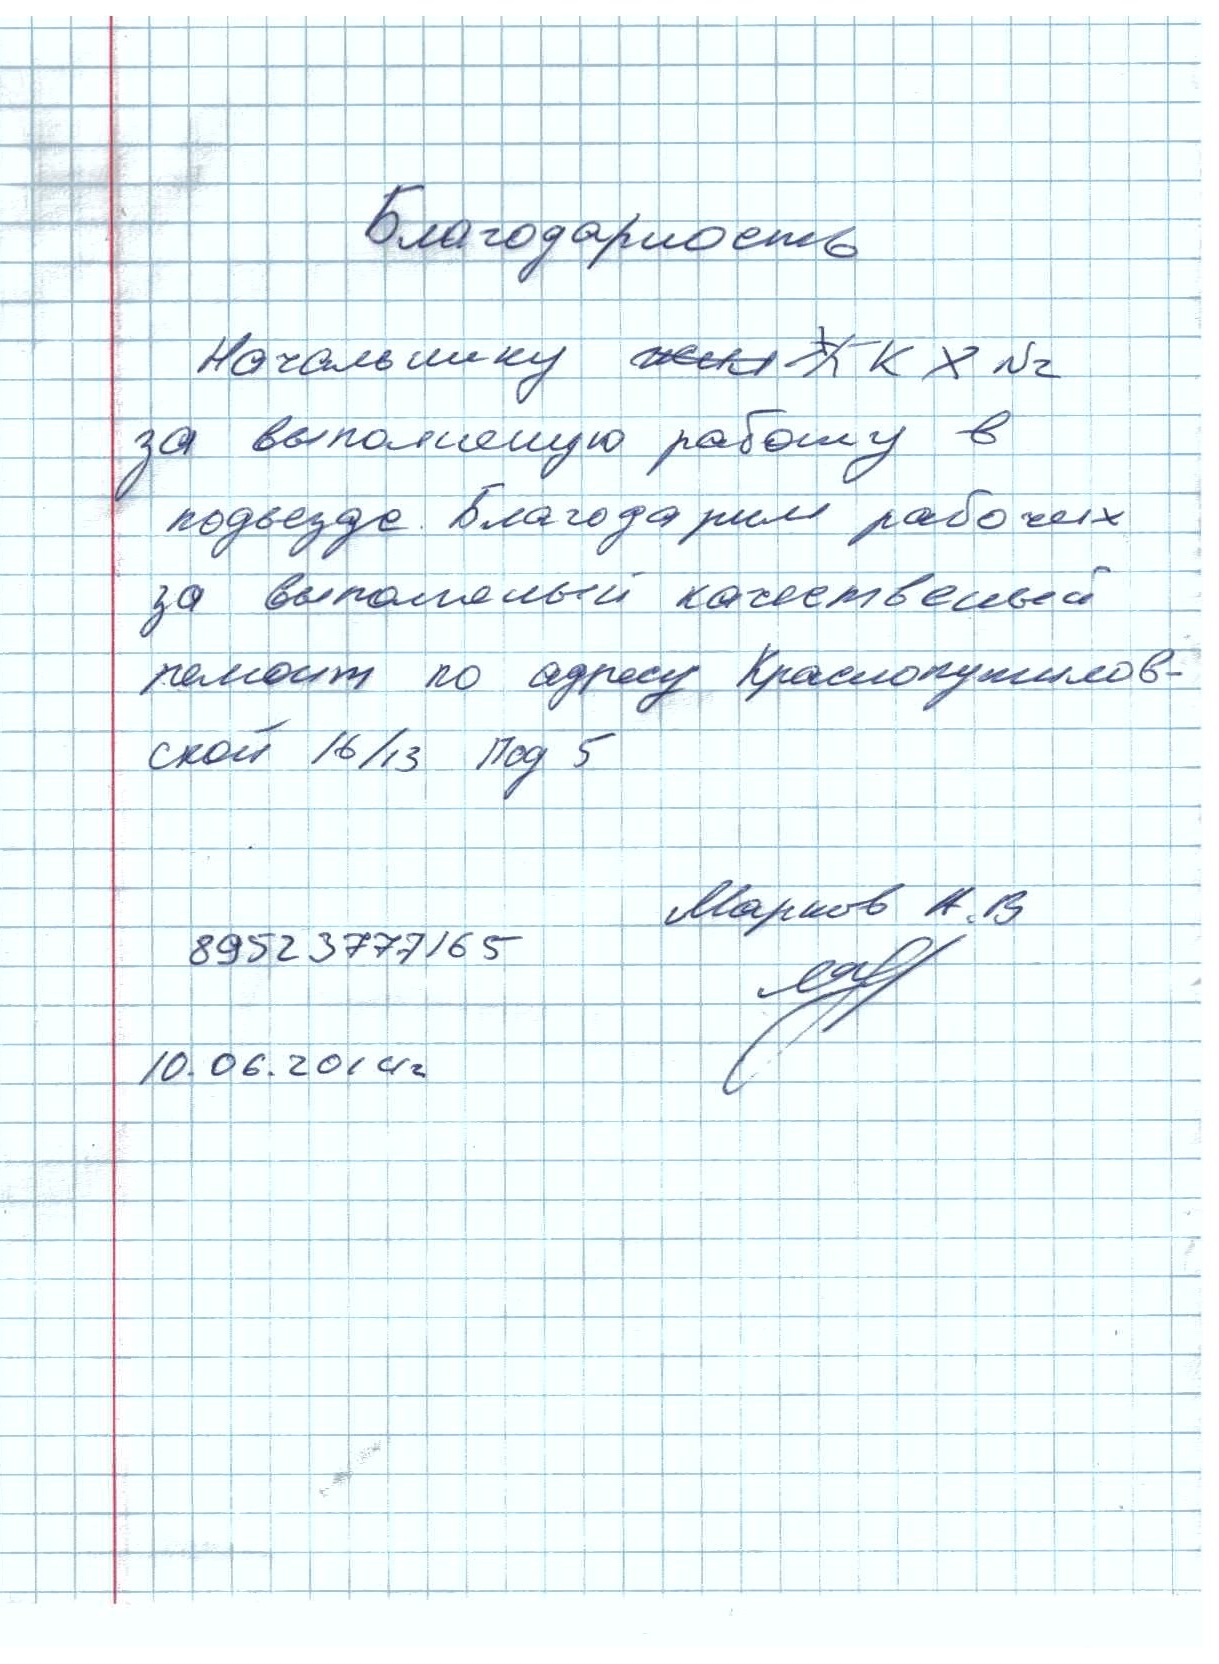 Благодарность
Начальнику ЖКХ №2
за выполненую работу в
подьезде. Благодарим рабочих
за выполненый качественый
ремонт по адресу Краснопутилов-
ской 16/13 Под 5
Марков А.В
89523777165
10.06.2014г